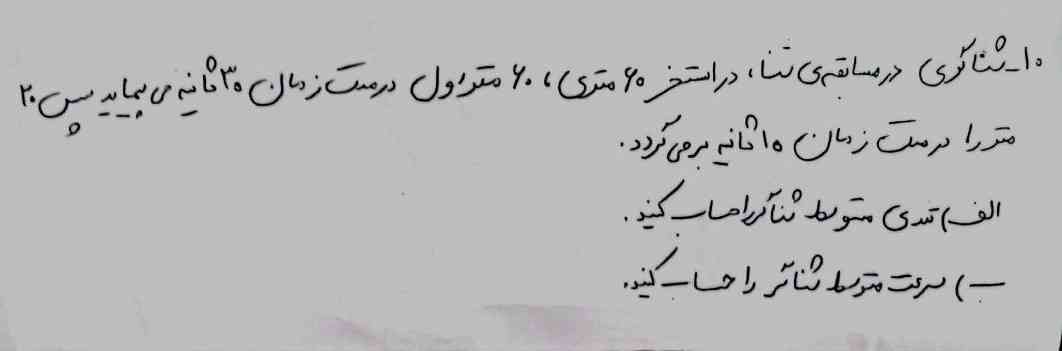 ۱۰_ شناگری در مسابقه‌ی شنا، در استخر ۶۰ متری، ۶۰ متر اول در مدت زمان ۳۰ ثانیه می پیماید سپس ۲۰
متر را در مدت زمان ۱۰ ثانیه برمی گردد.
الف) تندی متوسط شناگر را حساب کنید.
ب) سرعت متوسط شناگر را حساب کنید.